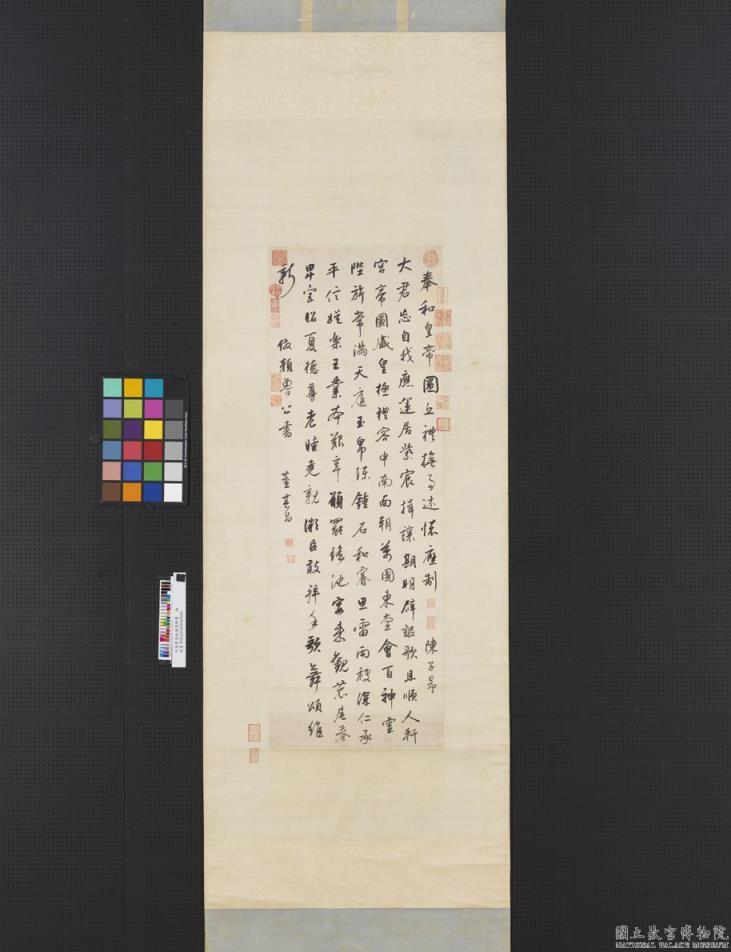 奉和皇帝圜丘禮撫事述懷應制 陳子昂
大君忘自我應運居紫宸揖讓期明辟謳歌且順人軒
宮帝圖盛皇極禮容申南面朝萬國東堂會百神雲
陛旂常滿天庭玉帛陳鐘石和睿思雷雨被深仁承
平信娛樂王業本艱辛願罷瑤池宴來觀農扈春
卑宮昭夏德尊老睦堯親微臣敢拜手歌舞頌維
新
倣顏魯公書 董其昌
國立故宮博物院
NATIONAL PALACE MUSEUM